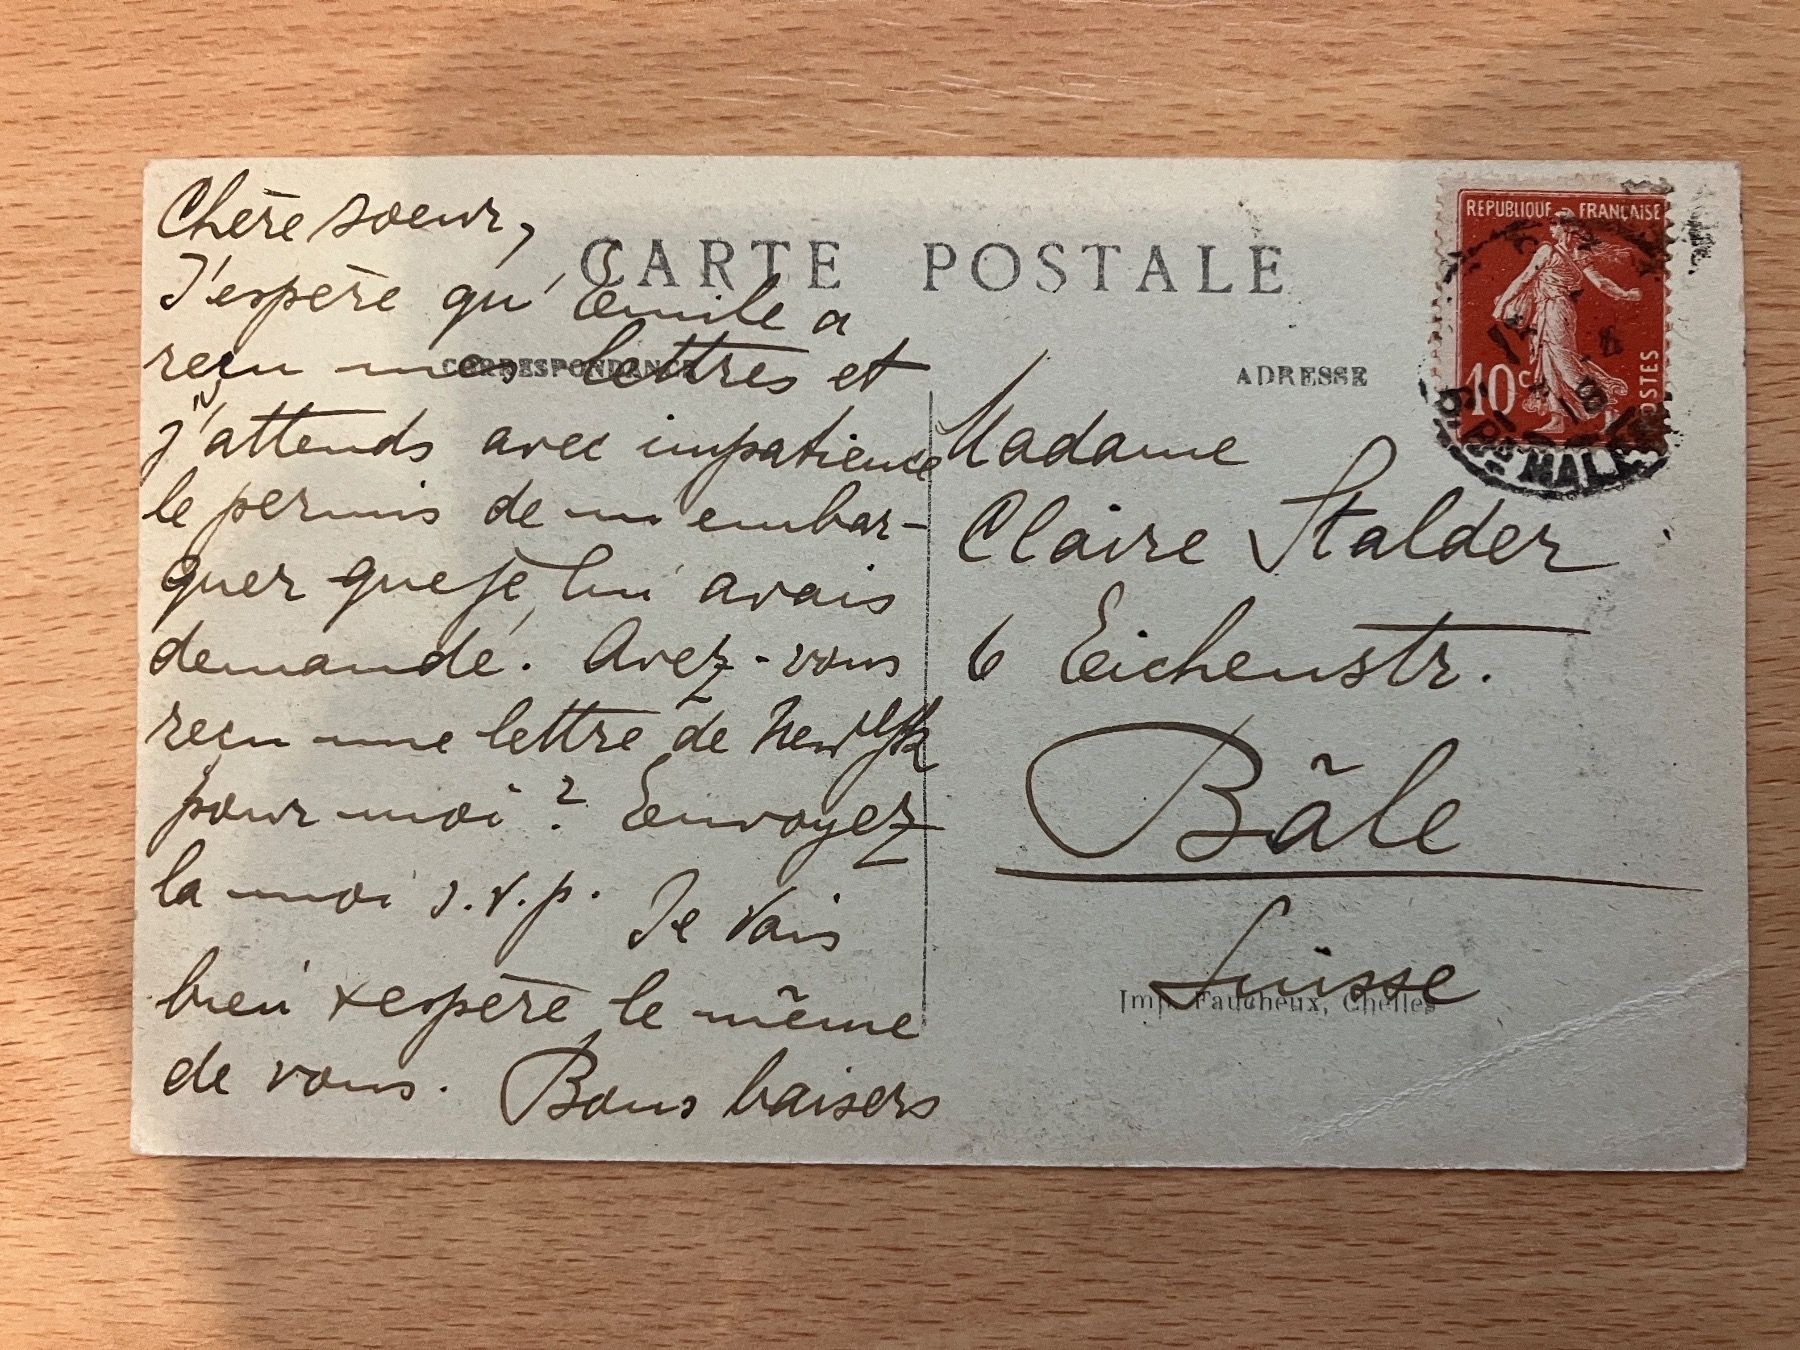 CARTE POSTALE
CORRESPONDANCE
Chère soeur,
J'espère qu'Emile a
reçu mes lettres et
j'attends avec impatience
le permis de m'embar-
quer que je lui avais
demandé. Avez-vous
reçu une lettre de New York
pour moi? Envoyez
la moi s.v.p. Je vais
bien + espère le même
de vous. Bons baisers
ADRESSE
Madame
Claire Stalder
6 Eichenstr.
Bâle
Suisse
Imp. Faucheux, Chelles
REPUBLIQUE FRANÇAISE
10c
POSTES